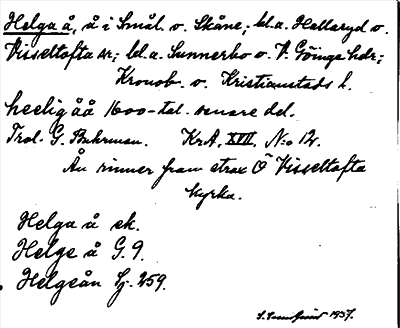 Helga å, å i Smål. o. Skåne; bl.a. Hallaryd o.
Visseltofta sr.; bl.a. Sunnerbo o. V. Göinge hdr;
Kronob. o. Kristianstads l.
heelig åå 1600-tal. senare del.
Trol. G. Buhrman. KrA, XVII, N:o 12.
Ån rinner fram strax Ö Visseltofta
kyrka.
Helga å ek.
Helge å G. 9.
Helgeån Lj. 259.
1937.